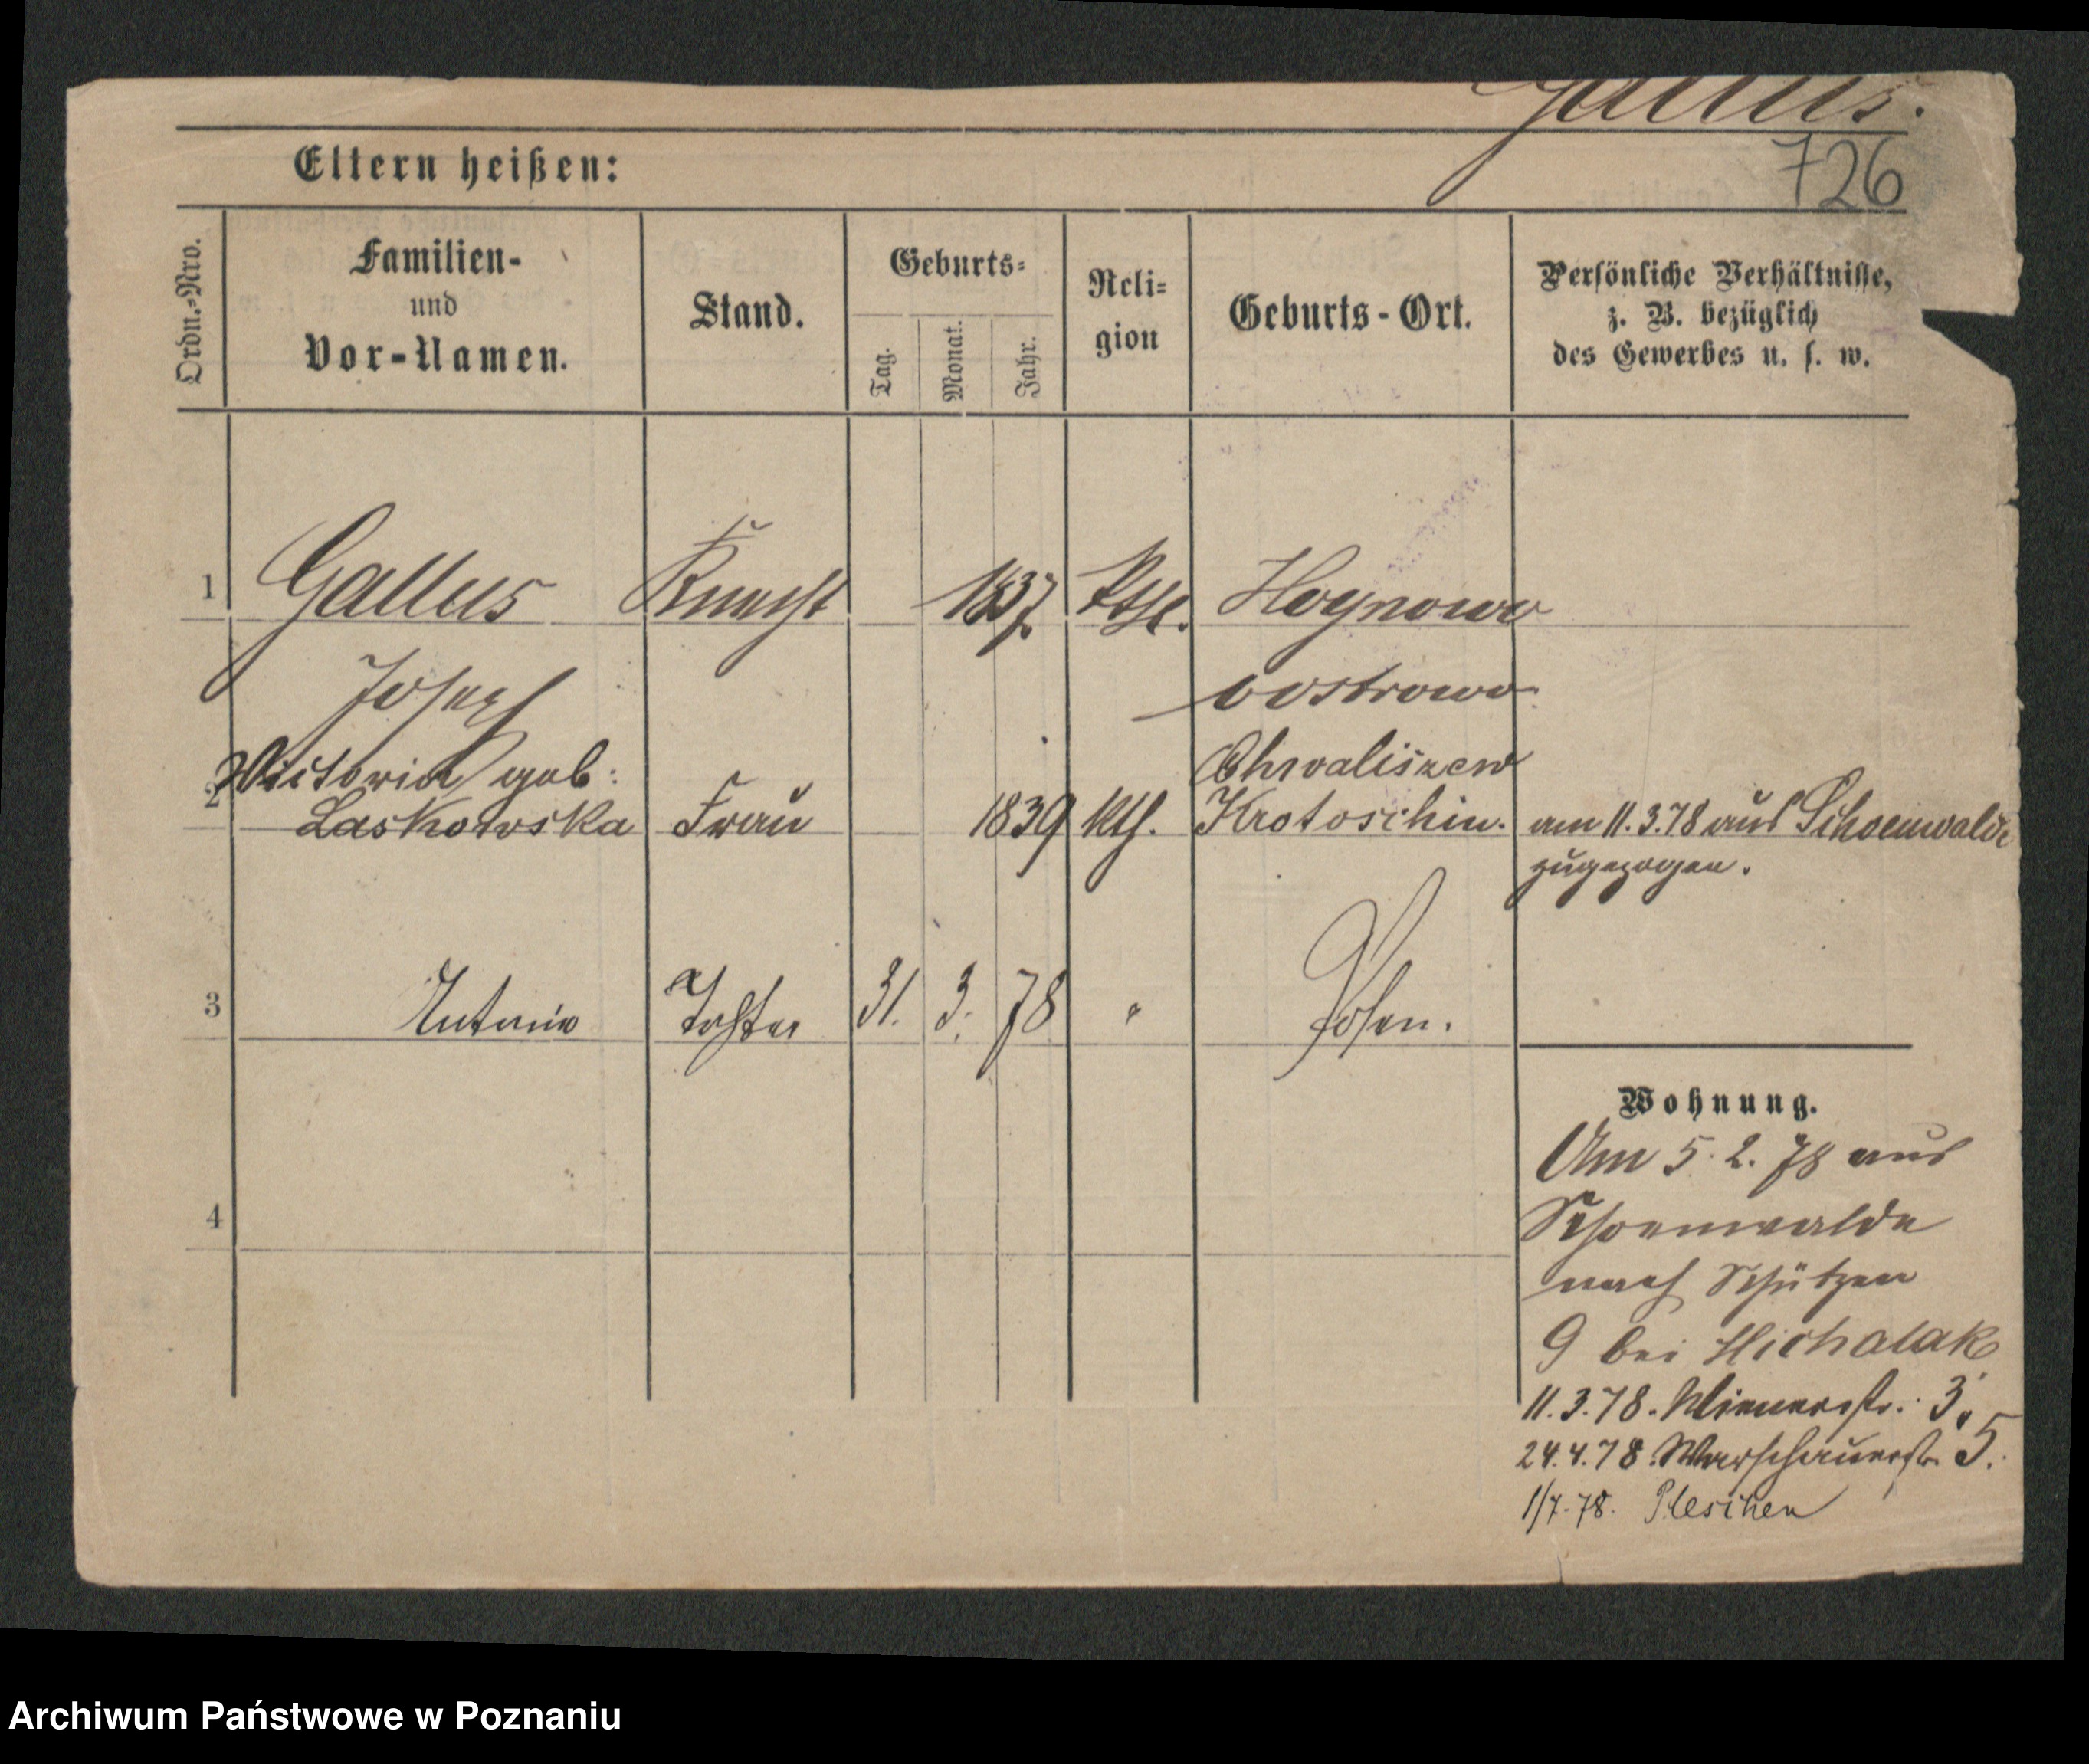 Gallus.
726
Eltern heißen:
Ordn.-Nro.
Familien-
und
Vor-Namen.
Stand.
Geburts-
Tag.
Monat.
Jahr.
Reli-
gion
Geburts-Ort.
Persönliche Verhältnisse,
z. B. bezüglich
des Gewerbes u. s. w.
1 Gallus Knecht 1837 Kth. Hoynowo
Josef ostrowo.
Victoria geb: Chwaliszew
2 Laskowska Frau 1839 kth. Krotoschin. am 11.3.78 aus Schoenwalde
zugezogen.
3 Antonie Tochter 31. 3. 78 " Posen.
4
Wohnung.
Am 5.2.78 aus
Schoenwalde
nach Schützen
9 bei Michalak
11.3.78. Wienerstr. 3.
24.4.78. Warschauerstr. 5.
1/7.78. Pleschen
Archiwum Państwowe w Poznaniu